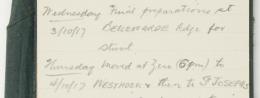 Wednesday Final preparations at
3/10/17 BELLEWARDE Ridge for
stunt.
Thursday moved at Zero (6pm) to
4/10/17 WESTHOEK & then to St JOSEPHS